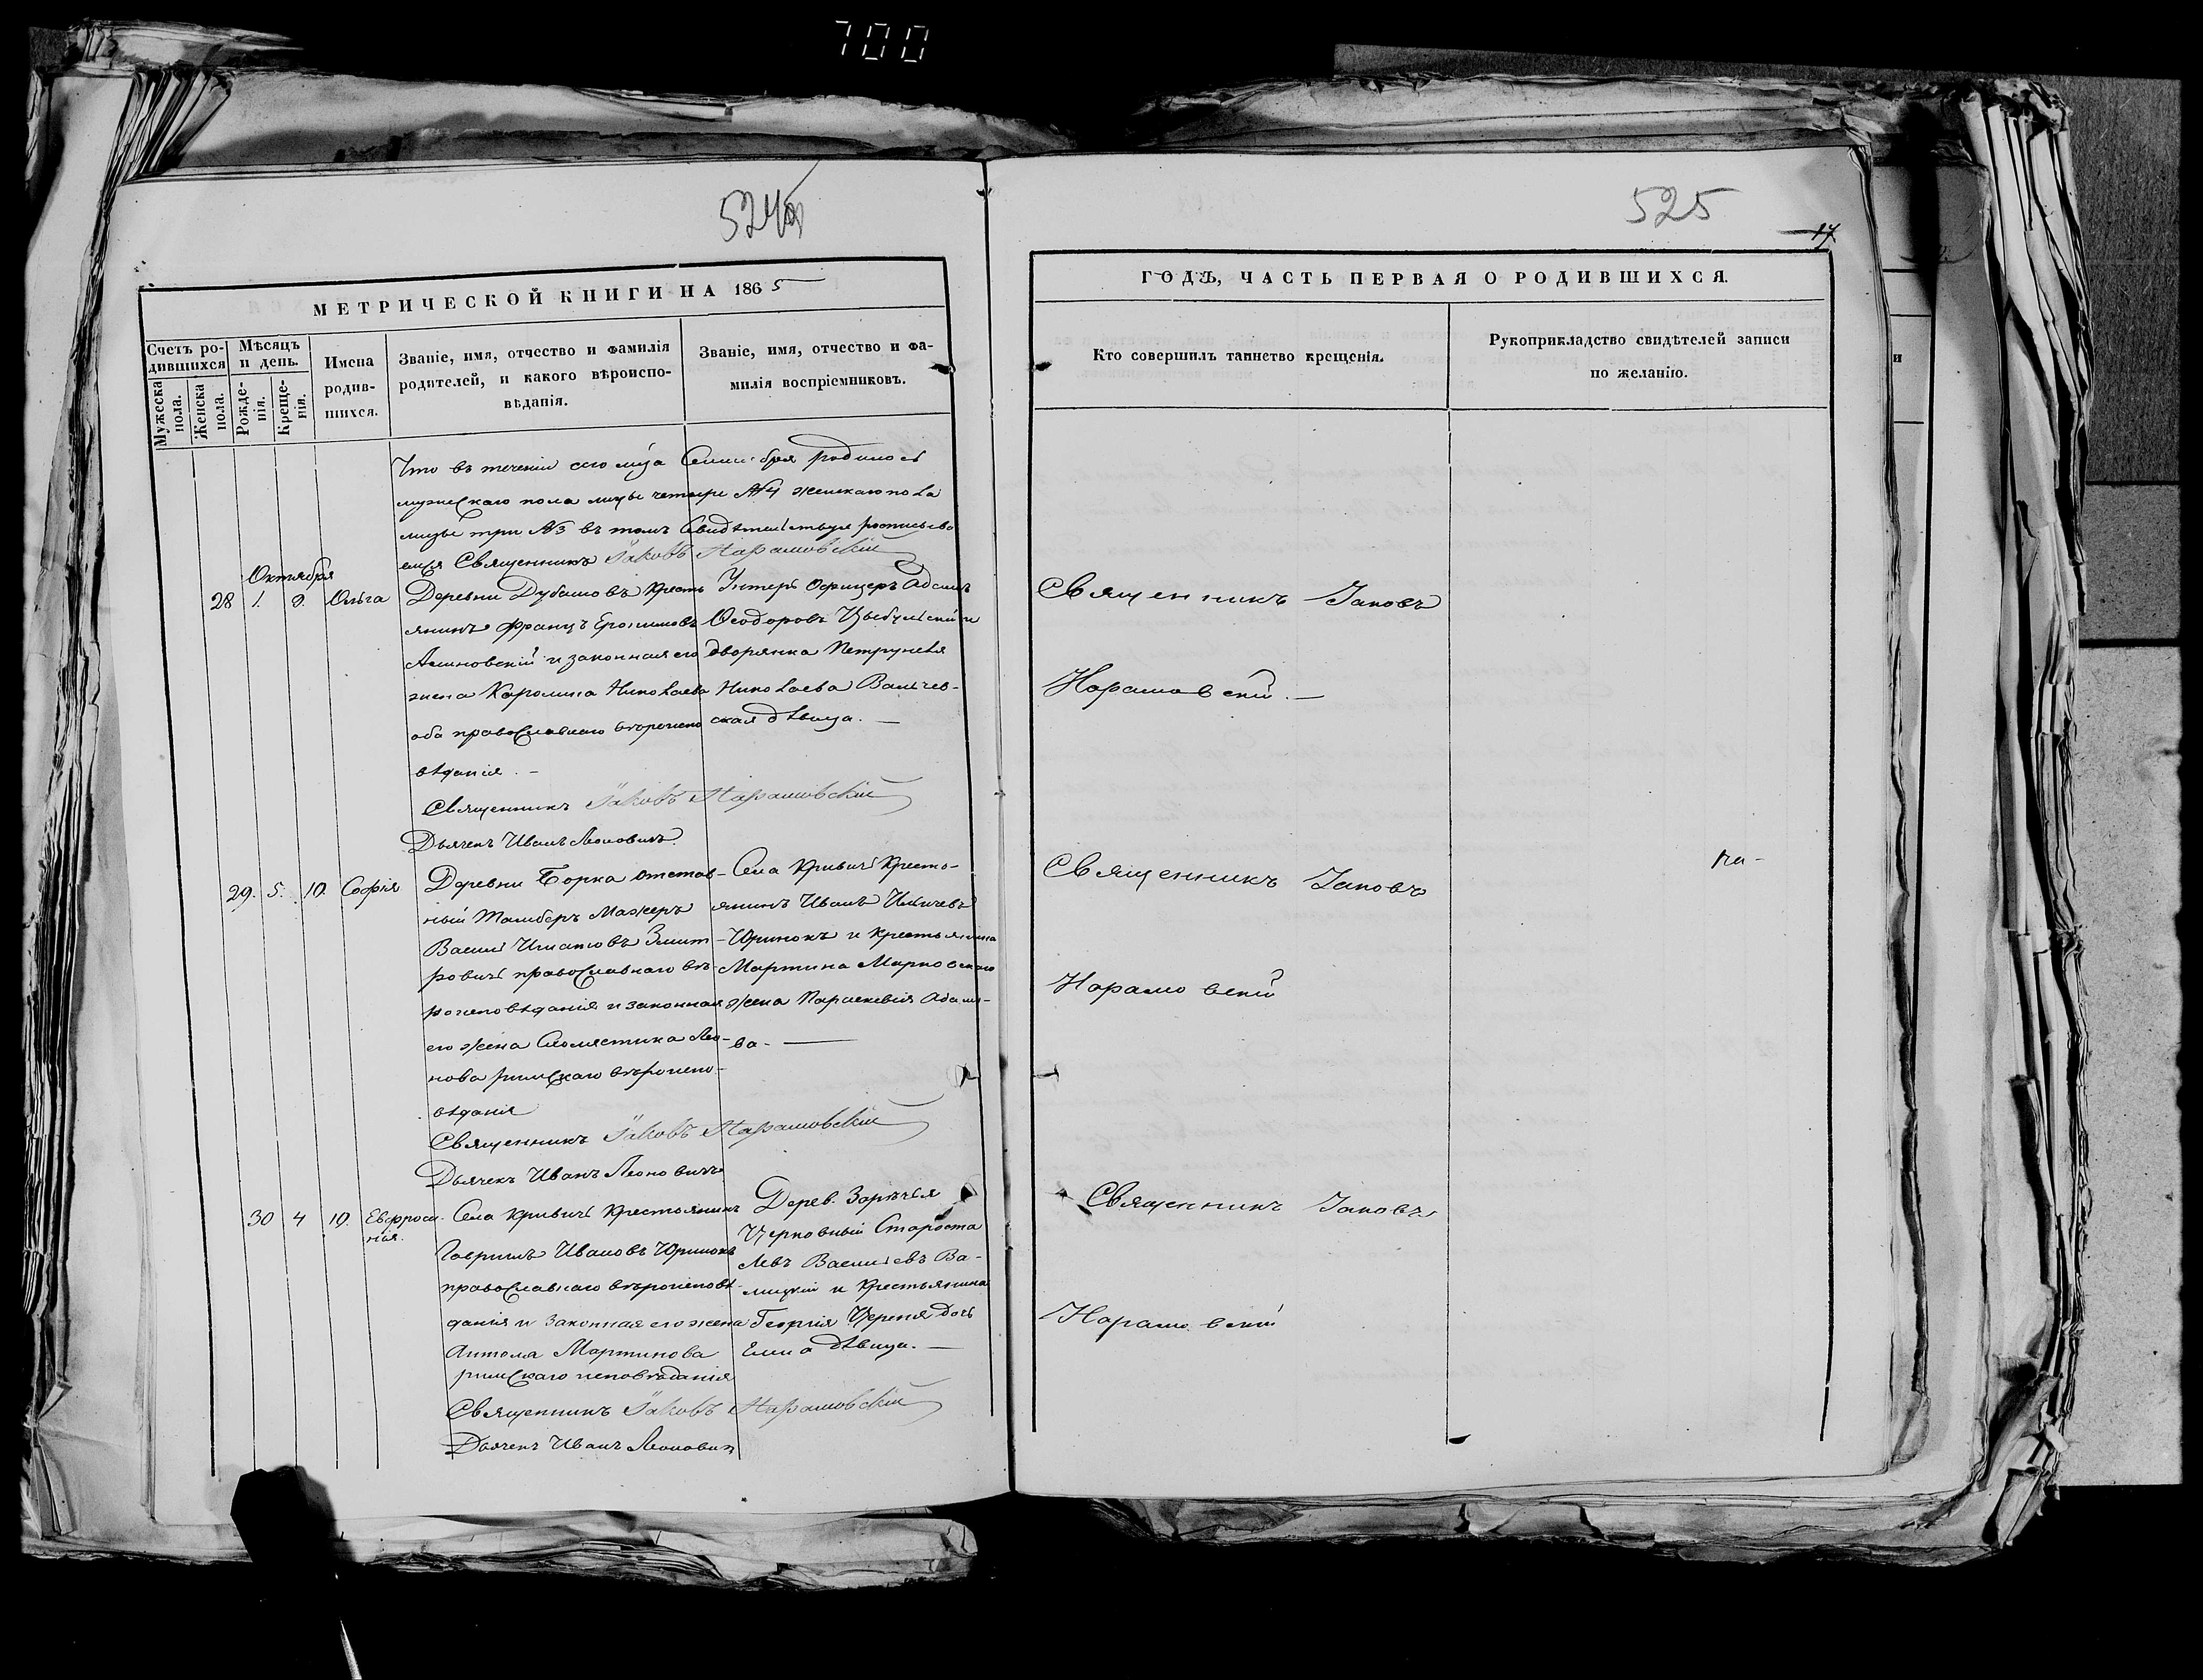 700
524
525
17
МЕТРИЧЕСКОЙ КНИГИ НА 1865
Счетъ ро-
дившихся
Мѣсяцъ
и день.
Мужеска
пола.
Женска
пола.
Рожде-
нія.
Креще-
нія.
Имена
родив-
шихся.
Званіе, имя, отчество и фамилія
родителей, и какого вѣроиспо-
вѣданія.
Званіе, имя, отчество и фа-
милія воспріемниковъ.
Что въ теченіи сего м-ца Сентября родилось
мужескаго пола лицъ четыре №4 женскаго пола
лицъ три №3 въ томъ Свидѣтельствуя росписью
Священникъ Іаковъ Нарановскій
Октября
28 1. 3. Ольга
Деревни Дубатовъ Кресть
янинъ Францъ Еронимовъ
Асиновскій и законная его
жена Каролина Николаева
оба православнаго вѣроиспо
вѣданія. –
Священникъ Іаковъ Нарановскій
Дьячекъ Иванъ Леоновичъ
Унтеръ Офицеръ Адамъ
Феодоровъ Цыбульскій и
дворянка Петрунеля
Николаева Вальчев-
ская дѣвица. —
29. 5. 10. Софія
Деревни Борка отстав-
ный Тамберъ Мажеръ
Василь Игнатовъ Змит-
ровичъ православнаго вѣ-
роисповѣданія и законная
его жена Схолястика Лео-
нова римскаго вѣроиспо-
вѣданія
Священникъ Іаковъ Нарановскій
Дьячекъ Иванъ Леоновичъ
Села Кривичъ Кресть-
янинъ Иванъ Ильичевъ
Юринокъ и Крестьянина
Мартина Марковскаго
жена Параскевія Адамо-
ва. —
30 4 10. Евфроси-
нія.
Села Кривичъ Крестьянинъ
Гавріилъ Ивановъ Юринокъ
православнаго вѣроисповѣ-
данія и Законная его жена
Антоля Мартинова
римскаго исповѣданія
Священникъ Іаковъ Нарановскій
Дьячекъ Иванъ Леоновичъ
Дерев. Зарѣчья
Церковный Староста
Левъ Васильевъ Ва-
лицкій и Крестьянина
Георгія Череня дочь
дѣвица. —
ГОДЪ, ЧАСТЬ ПЕРВАЯ О РОДИВШИХСЯ.
Кто совершилъ таинство крещенія.
Рукоприкладство свидѣтелей записи
по желанію.
Священникъ Іаковъ
Нарановскій. —
Священникъ Іаковъ
Нарановскій
Священникъ Іаковъ
Нарановскій